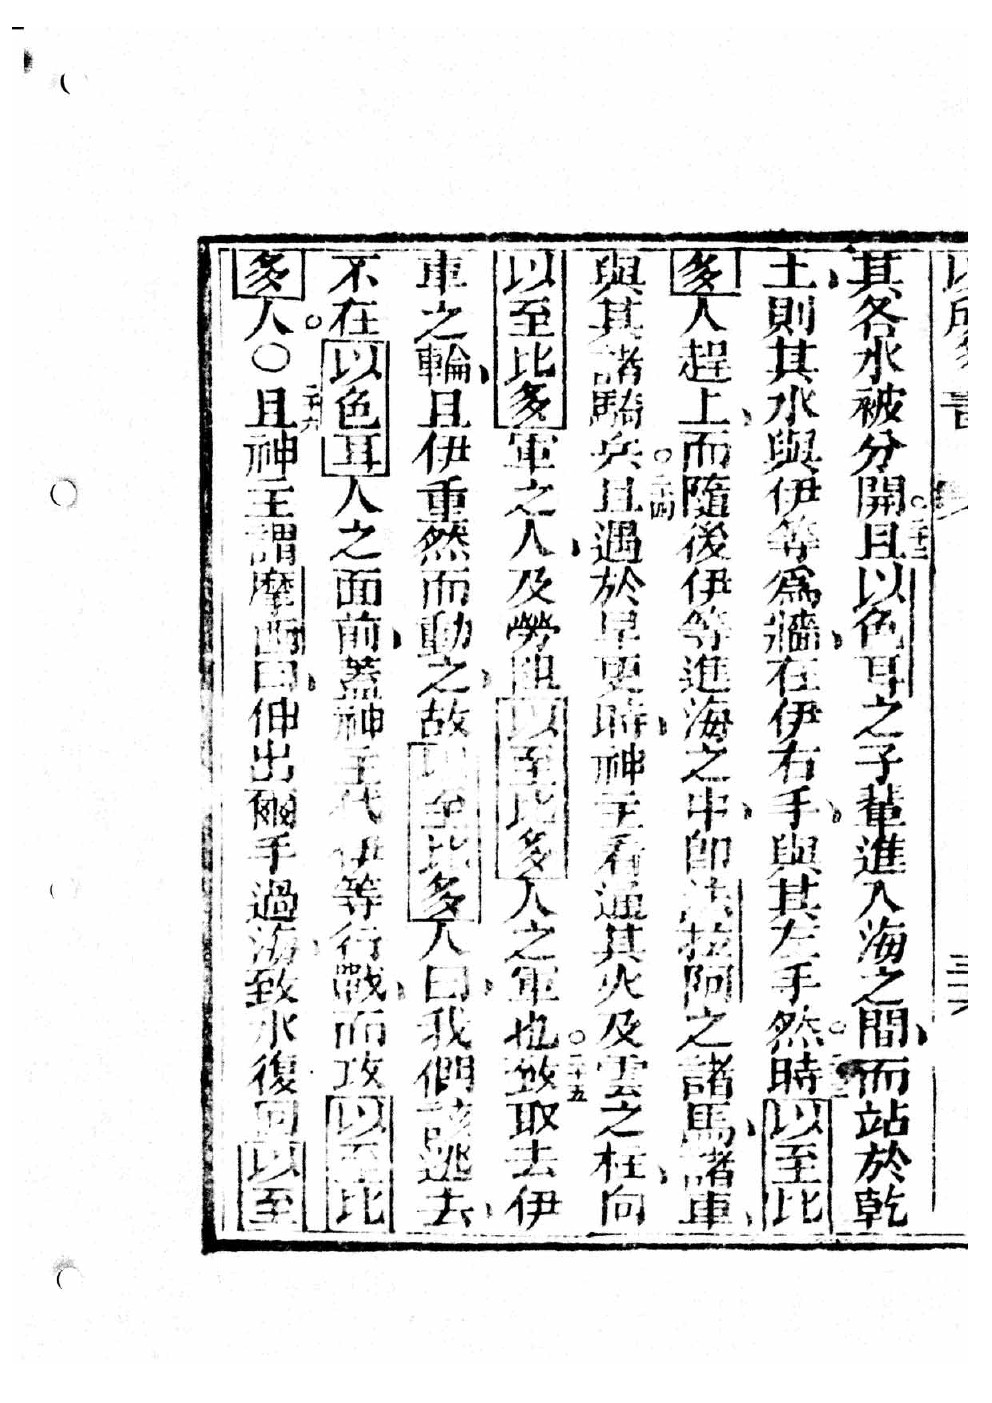 其各水被分開。二十二且以色耳之子輩進入海之間、而站於乾
土、則其水與伊等為牆、在伊右手、與其左手。然時以至比
多人趕上、而隨後伊等進海之中、即法拉阿之諸馬、諸車、
與其諸騎兵。二十四且遇於早更時、神主看通其火及雲之柱、向
以至比多軍之人、及勞阻以至比多人之軍也。二十五並取去伊
車之輪、且伊重然而動之、故以至比多人曰、我們該逃去、
不在以色耳人之面前、蓋神主代伊等行戰、而攻以至比
多人。〇二十六且神主謂摩西曰、伸出爾手過海、致水復回以至